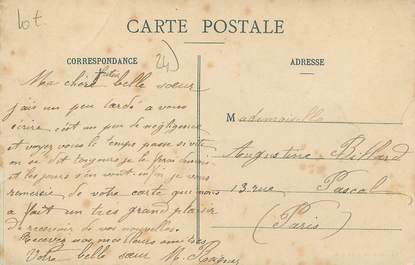 lot
CARTE POSTALE
CORRESPONDANCE
24)
ADRESSE
Ma chère belle sœur
j'ais un peu tardé a vous
écrire c'est un peu de négligence
et voyez vous le temps passe si vite
on se dit toujours je le ferai
et les jours s'en vont enfin je vous
remercie de votre carte qui nous
a fait un tres grand plaisir
de recevoir de vos nouvelles.
Recevez nos meilleurs amitiés
Votre belle sœur M.
Mademoiselle
Augustine Billard
13 rue Pascal
(Paris)